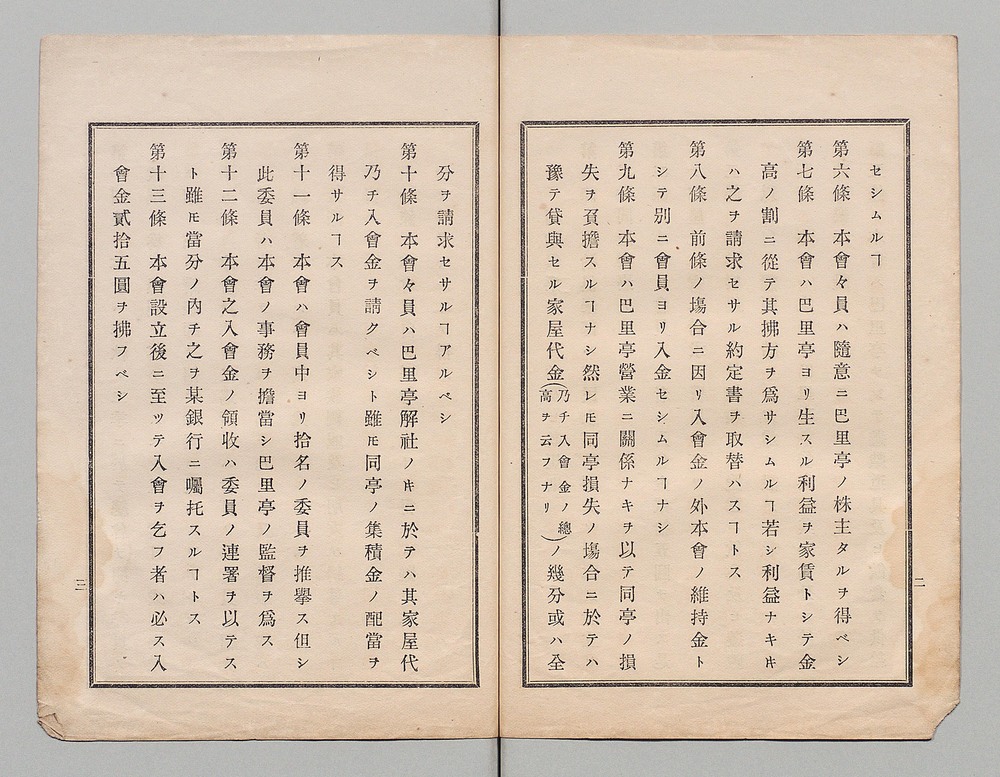 セシムルヿ
第六條　本會々員ハ隨意ニ巴里亭ノ株主タルヲ得ベシ
第七條　本會ハ巴里亭ヨリ生スル利益ヲ家賃トシテ金
高ノ割ニ從テ其拂方ヲ爲サシムルヿ若シ利益ナキ𪜈
ハ之ヲ請求セサル約定書ヲ取替ハスヿトス
第八條　前條ノ塲合ニ因リ入會金ノ外本會ノ維持金ト
シテ別ニ會員ヨリ入金セシムルヿナシ
第九條　本會ハ巴里亭營業ニ關係ナキヲ以テ同亭ノ損
失ヲ負擔スルヿナシ然レ𪜈同亭損失ノ塲合ニ於テハ
豫テ貸與セル家屋代金(乃チ入會金ノ總高ヲ云フナリ)ノ幾分或ハ全
二
分ヲ請求セサルヿアルベシ
第十條　本會々員ハ巴里亭解社ノ𪜈ニ於テハ其家屋代
乃チ入會金ヲ請クベシト雖𪜈同亭ノ集積金ノ配當ヲ
得サルヿス
第十一條　本會ハ會員中ヨリ拾名ノ委員ヲ推擧ス但シ
此委員ハ本會ノ事務ヲ擔當シ巴里亭ノ監督ヲ爲ス
第十二條　本會之入會金ノ領收ハ委員ノ連署ヲ以テス
ト雖𪜈當分ノ內チ之ヲ某銀行ニ囑托スルヿトス
第十三條　本會設立後ニ至ッテ入會ヲ乞フ者ハ必ス入
會金貳拾五圓ヲ拂フベシ
三